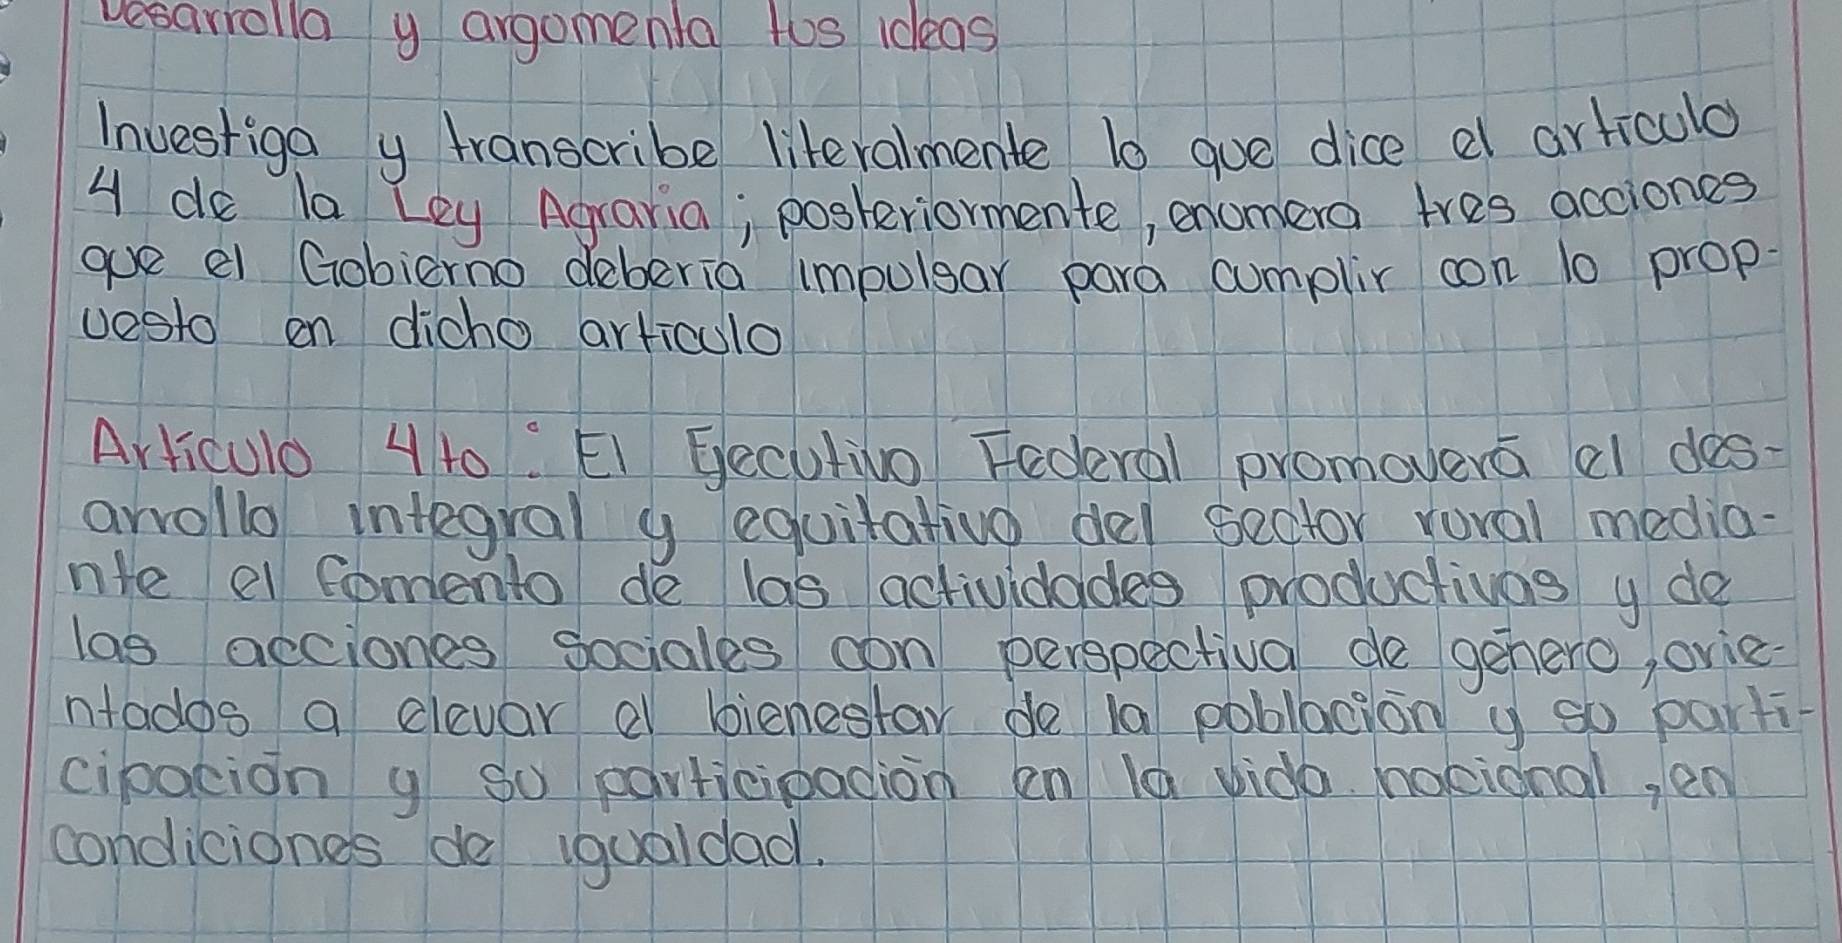 Desarrolla y argomenta tus ideas
Investiga y transcribe literalmente lo que dice el articulo
4 de la Ley Agraria; posteriormente, enumera tres acciones
que el Gobierno debería impulsar para cumplir con lo prop-
uesto en dicho articulo
Articulo 4to: El Ejecutivo Federal promoverá el des-
arrollo integral y equitativo del sector rural media-
nte el fomento de las actividades productivas y de
las acciones sociales con perspectiva de género, orie-
ntados a elevar el bienestar de la población y su parti-
cipación y su participación en la vida nacional, en
condiciones de igualdad.